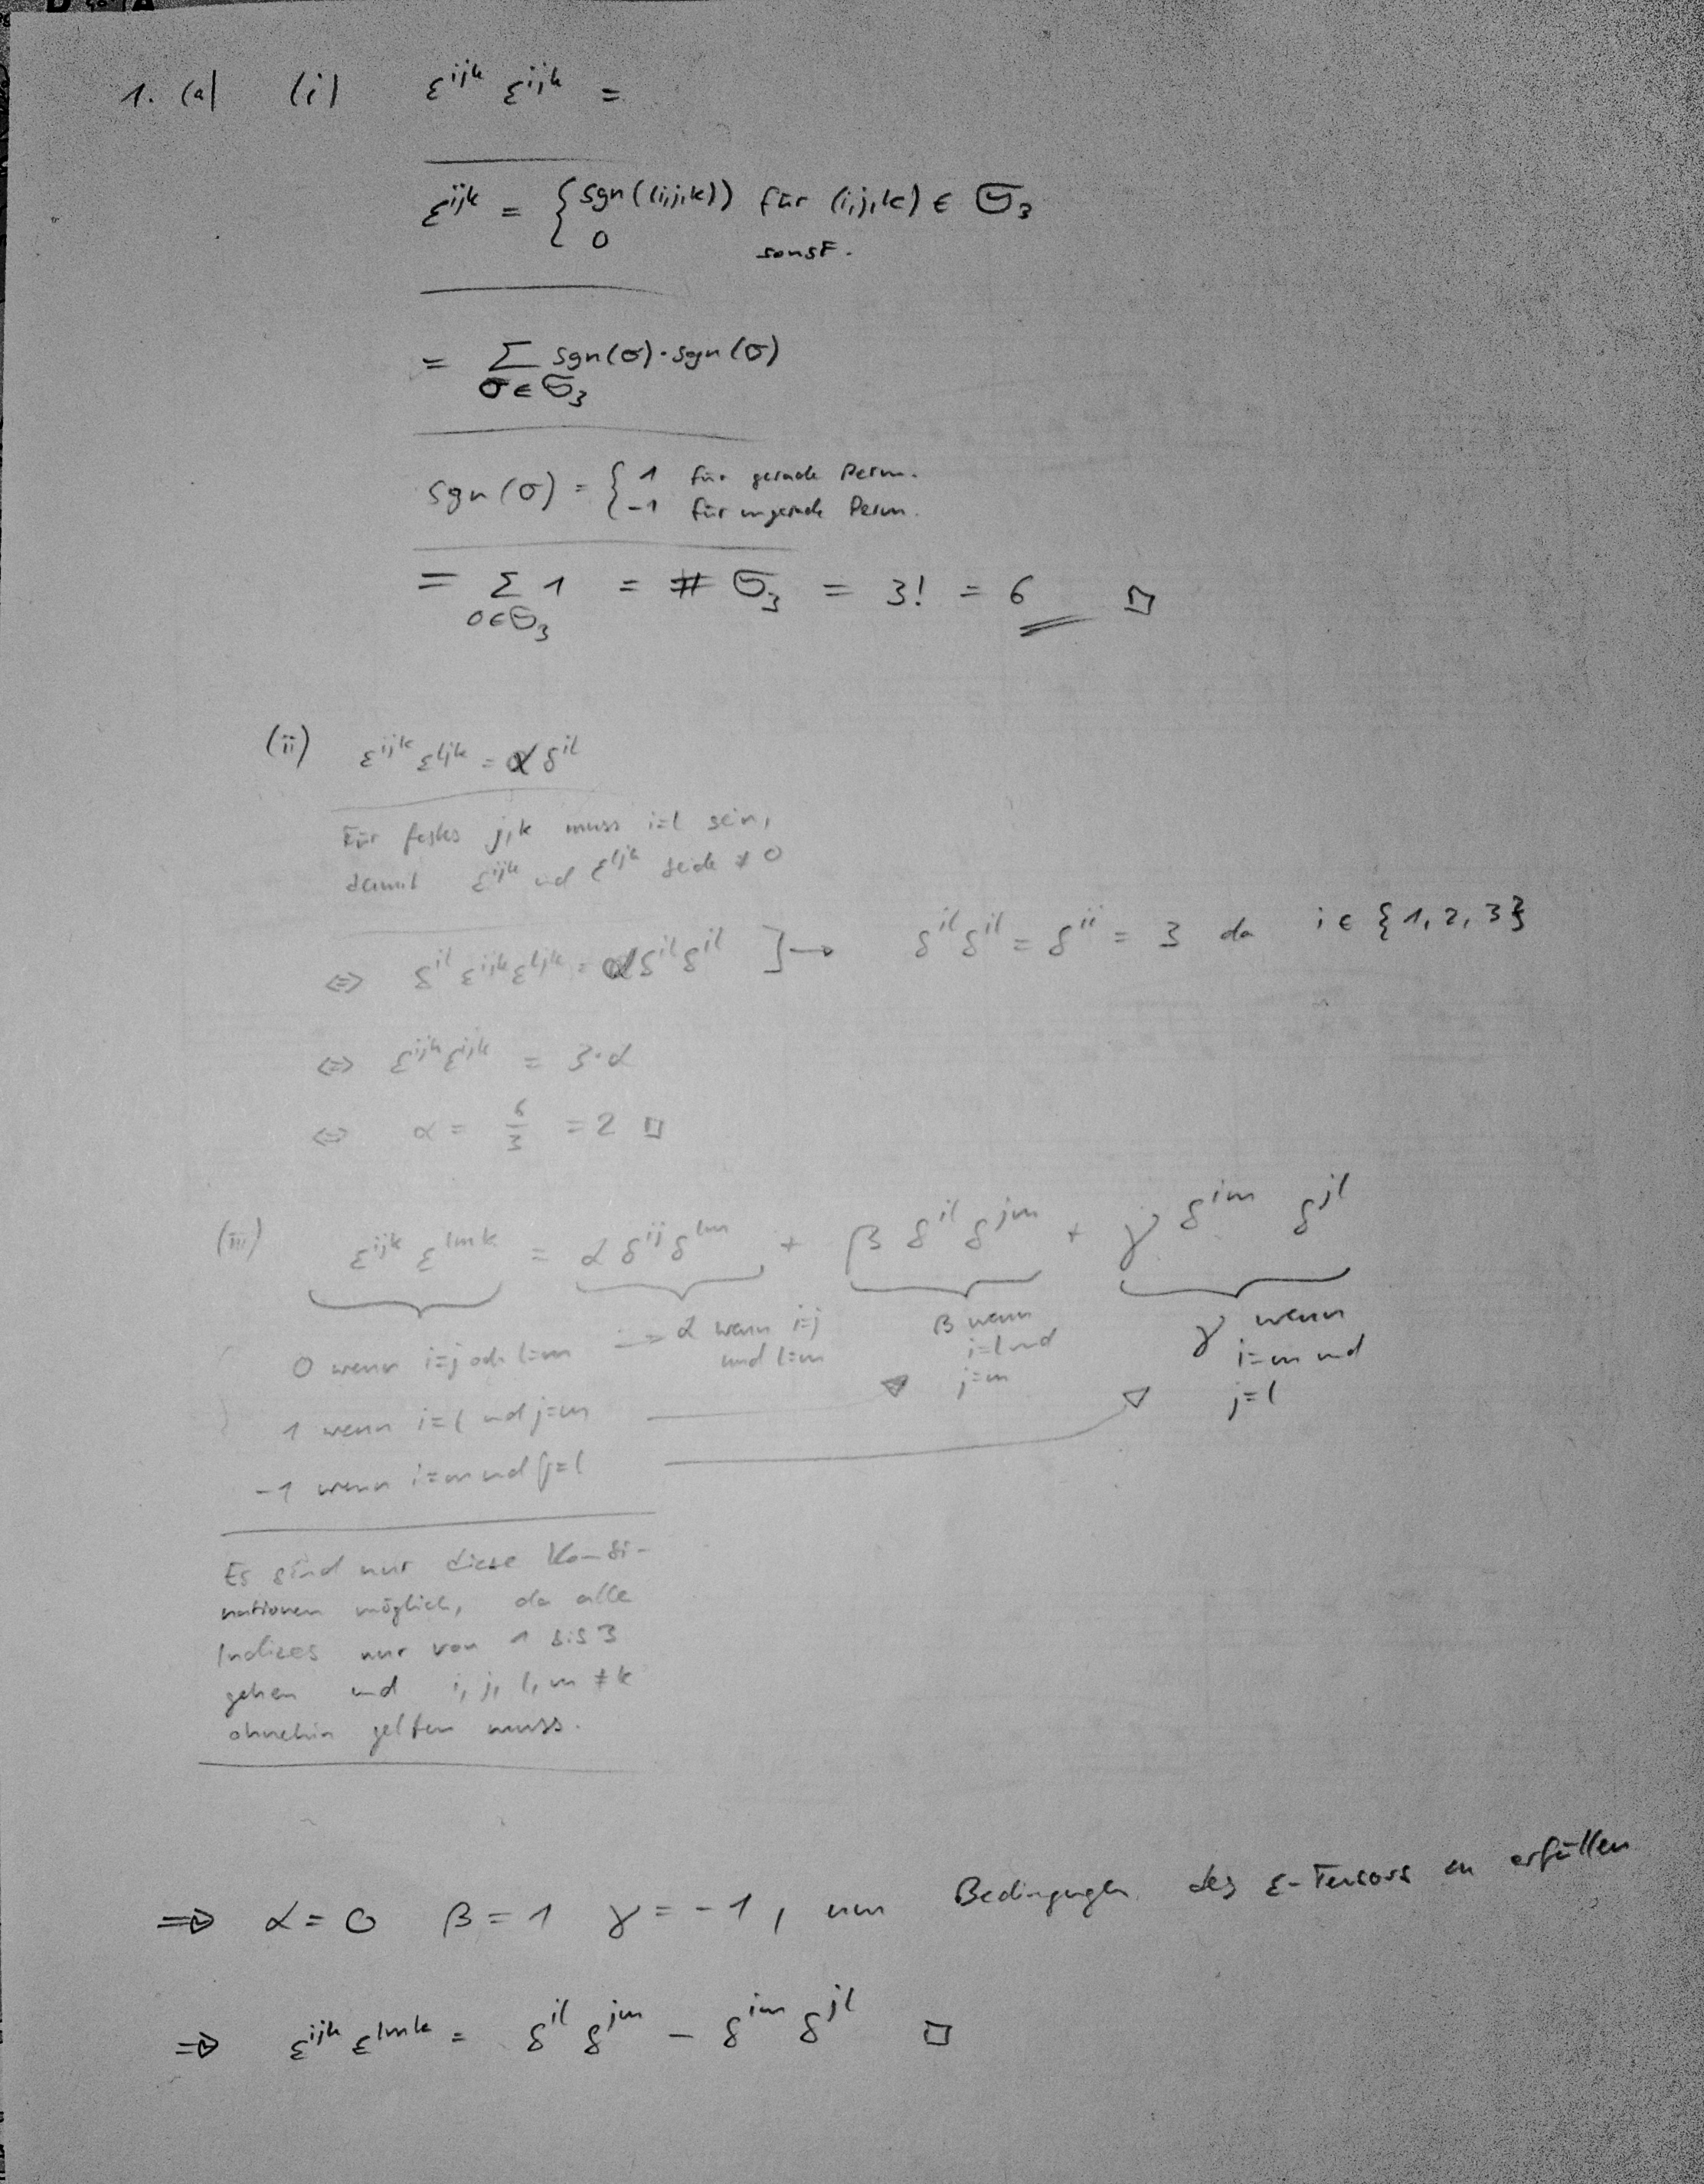 1. (a) (i) ε^{ijk} ε^{ijk} =
ε^{ijk} = { sgn((i,j,k)) für (i,j,k) ∈ 𝔖_3
0 sonst.
= Σ_{σ∈𝔖_3} sgn(σ)·sgn(σ)
sgn(σ) = { 1 für gerade Perm.
-1 für ungerade Perm.
= Σ_{σ∈𝔖_3} 1 = # 𝔖_3 = 3! = 6 □
(ii) ε^{ijk} ε^{ljk} = α δ^{il}
Für festes j,k muss i=l sein,
damit ε^{ijk} und ε^{ljk} beide ≠ 0
⇔ δ^{il} ε^{ijk} ε^{ljk} = α δ^{il} δ^{il} ]→ δ^{il} δ^{il} = δ^{ii} = 3 da i ∈ {1, 2, 3}
⇔ ε^{ijk} ε^{ijk} = 3·α
⇔ α = 6/3 = 2 □
(iii) ε^{ijk} ε^{lmk} = α δ^{ij} δ^{lm} + β δ^{il} δ^{jm} + γ δ^{im} δ^{jl}
0 wenn i=j oder l=m → α wenn i=j und l=m
β wenn i=l und j=m
γ wenn i=m und j=l
1 wenn i=l und j=m
-1 wenn i=m und j=l
Es sind nur diese Kombi-
nationen möglich, da alle
Indizes nur von 1 bis 3
gehen und i, j, l, m ≠ k
ohnehin gelten muss.
⇒ α = 0 β = 1 γ = -1, um Bedingungen des ε-Tensors zu erfüllen
⇒ ε^{ijk} ε^{lmk} = δ^{il} δ^{jm} - δ^{im} δ^{jl} □